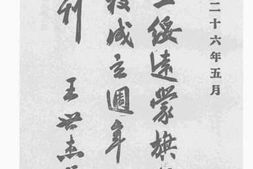 二十六年五月
立綏遠蒙旗
校成立週年
刊
王世杰